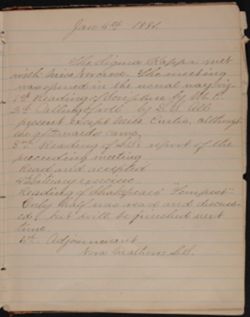 Jan 4th 1881.
The Sigma Kappa met
with Miss . The meeting
was opened in the usual way by
1st Reading of Scripture by
2nd Calling of roll by All
present except Miss , although
she afterwards came.
3rd Reading of the report of the
preceeding meeting
Read and accepted
4th Literary exercises
Reading of Shakespeare's "Tempest"
Only half was read and discus-
sed, but will be finished next
time.
5th Adjournment